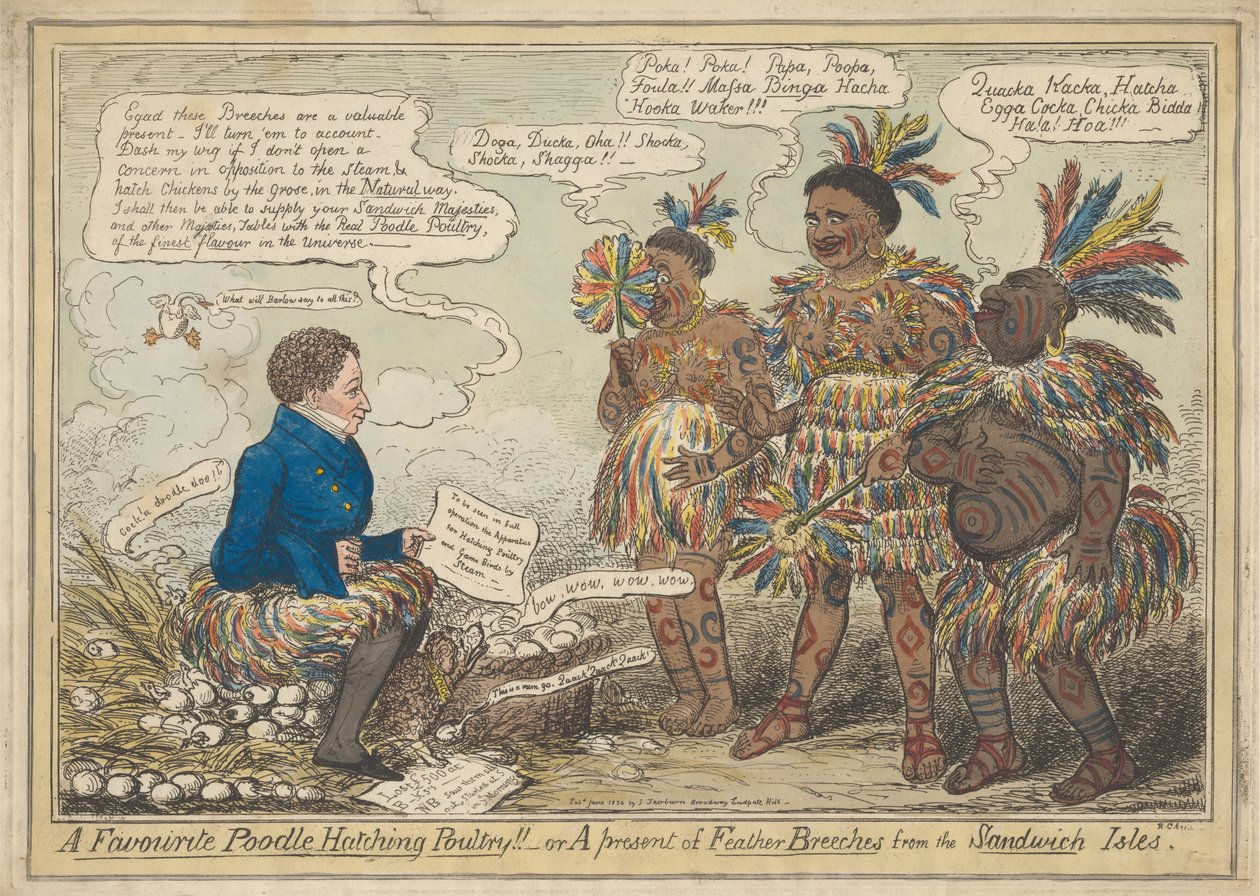 Egad these Breeches are a valuable
present — I'll turn 'em to account —
Dash my wig if I don't open a
concern in opposition to the Steam, &
hatch Chickens by the Grose, in the Natural way.
I shall then be able to supply your Sandwich Majesties,
and other Majesties, Tables with the Real Poodle Poultry,
of the finest flavour in the Universe. —
Doga, Ducka, Oha!! Shocka,
Shocka, Shagga!! —
Poka! Poka! Papa, Poopa,
Foula!! Massa Binga Hacha
Hooka Waker!!!
Quacka Kacka, Hatcha
Egga Cocka Chicka Bidda
Ha!a! Hoa!!! —
What will Barlow say to all this?
Cock'a doodle doo!!
To be seen in full
operation the Apparatus
for Hatching Poultry
and Game Birds by
Steam —
bow, wow, wow, wow
This is a rum go. Quack! Quack! Quack!
500 at
NB
Pubd. June 1824 by J Fairburn Broadway Ludgate Hill —
A Favourite Poodle Hatching Poultry!! — or A present of Feather Breeches from the Sandwich Isles.